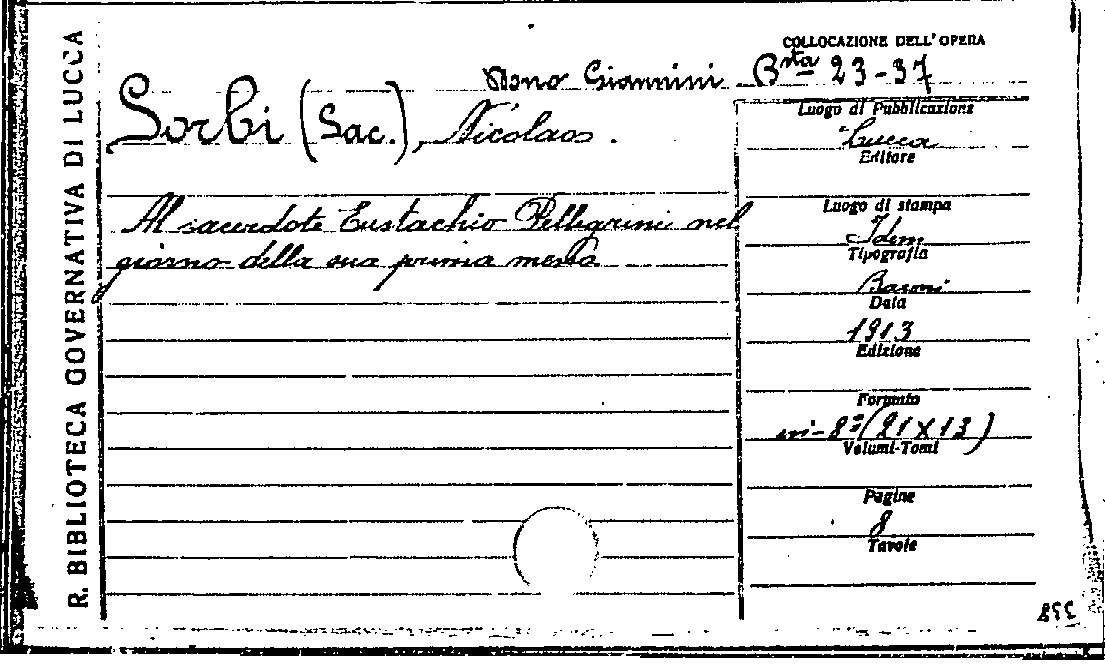 R. BIBLIOTECA GOVERNATIVA DI LUCCA
COLLOCAZIONE DELL'OPERA
Dono Giannini Bsta 23-37
Sorbi (Sac.), Nicolaos.
Al sacerdote Eustachio Pellegrini nel
giorno della sua prima messa
Luogo di Pubblicazione
Lucca
Editore
Luogo di stampa
Idem
Tipografia
Baroni
Data
1913
Edizione
Formato
in-8º (21X13)
Volumi-Tomi
Pagine
8
Tavole